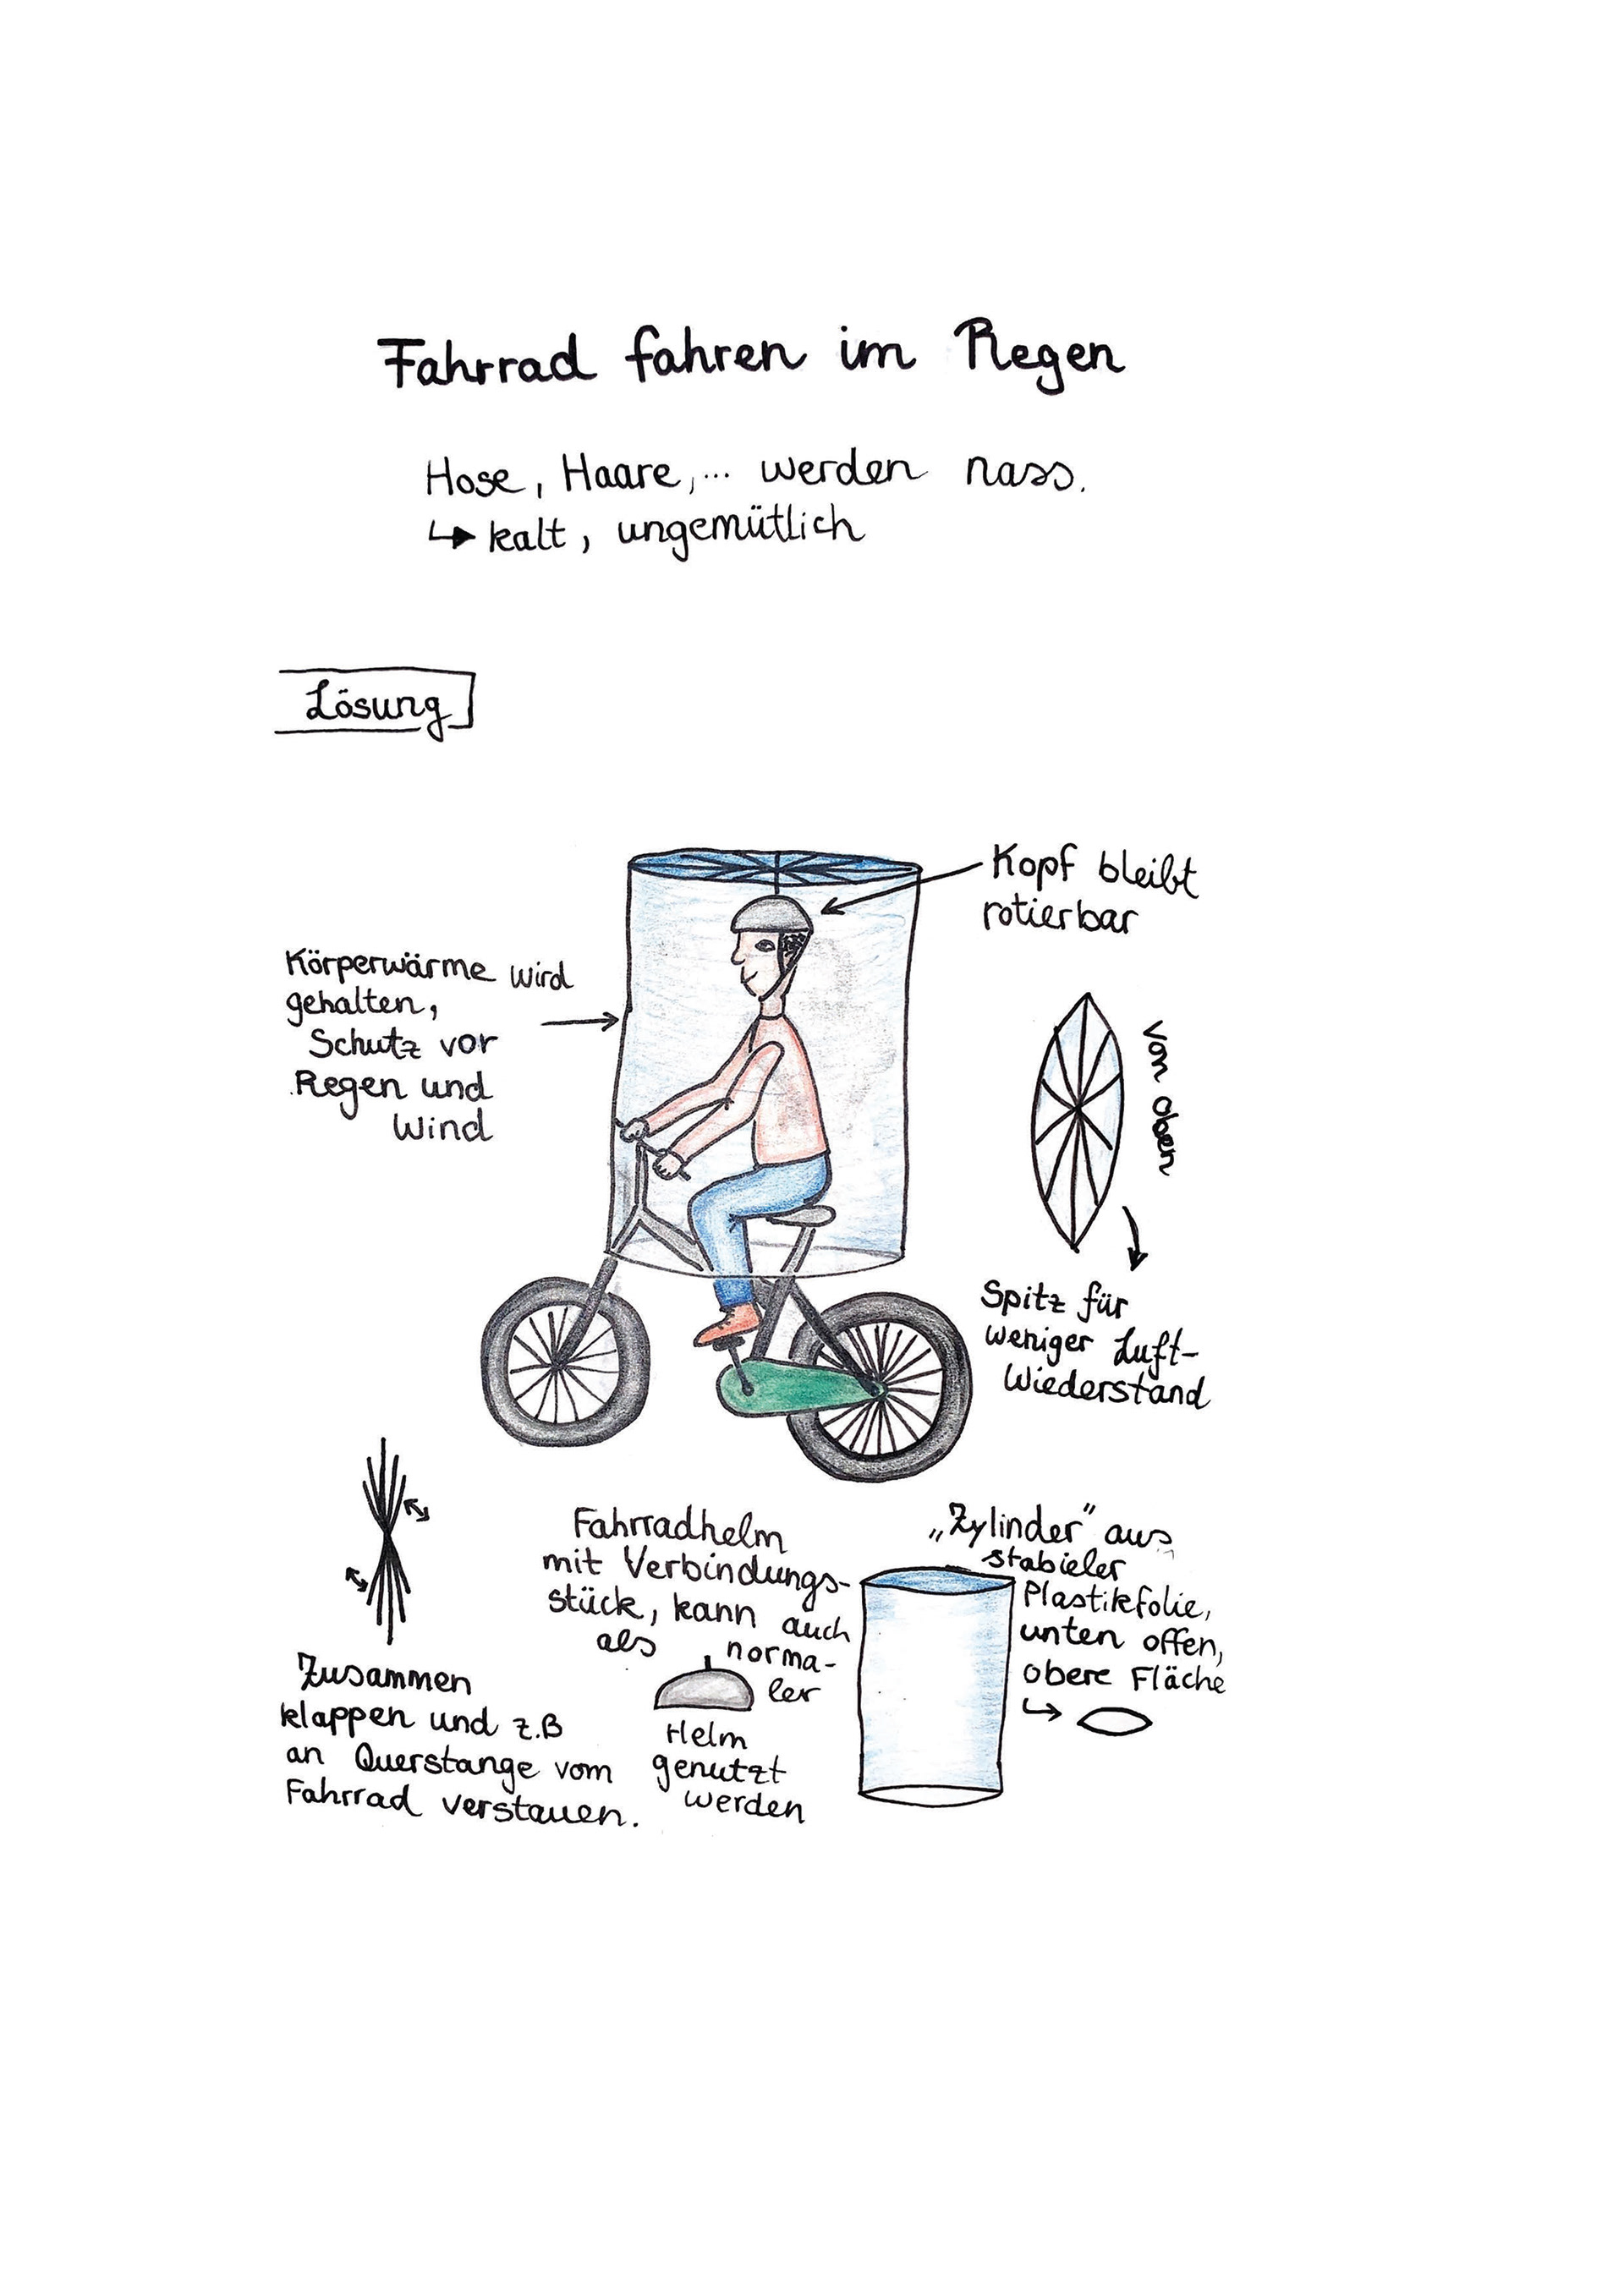 Fahrrad fahren im Regen
Hose, Haare,... werden nass.
↳ kalt, ungemütlich
Lösung
Kopf bleibt
rotierbar
Körperwärme wird
gehalten,
Schutz vor
Regen und
Wind
von oben
Spitz für
weniger Luft-
Wiederstand
Zusammen
klappen und z.B
an Querstange vom
Fahrrad verstauen.
Fahrradhelm
mit Verbindungs-
stück, kann auch
als norma-
ler
Helm
genutzt
werden
„Zylinder“ aus
stabieler
Plastikfolie,
unten offen,
obere Fläche